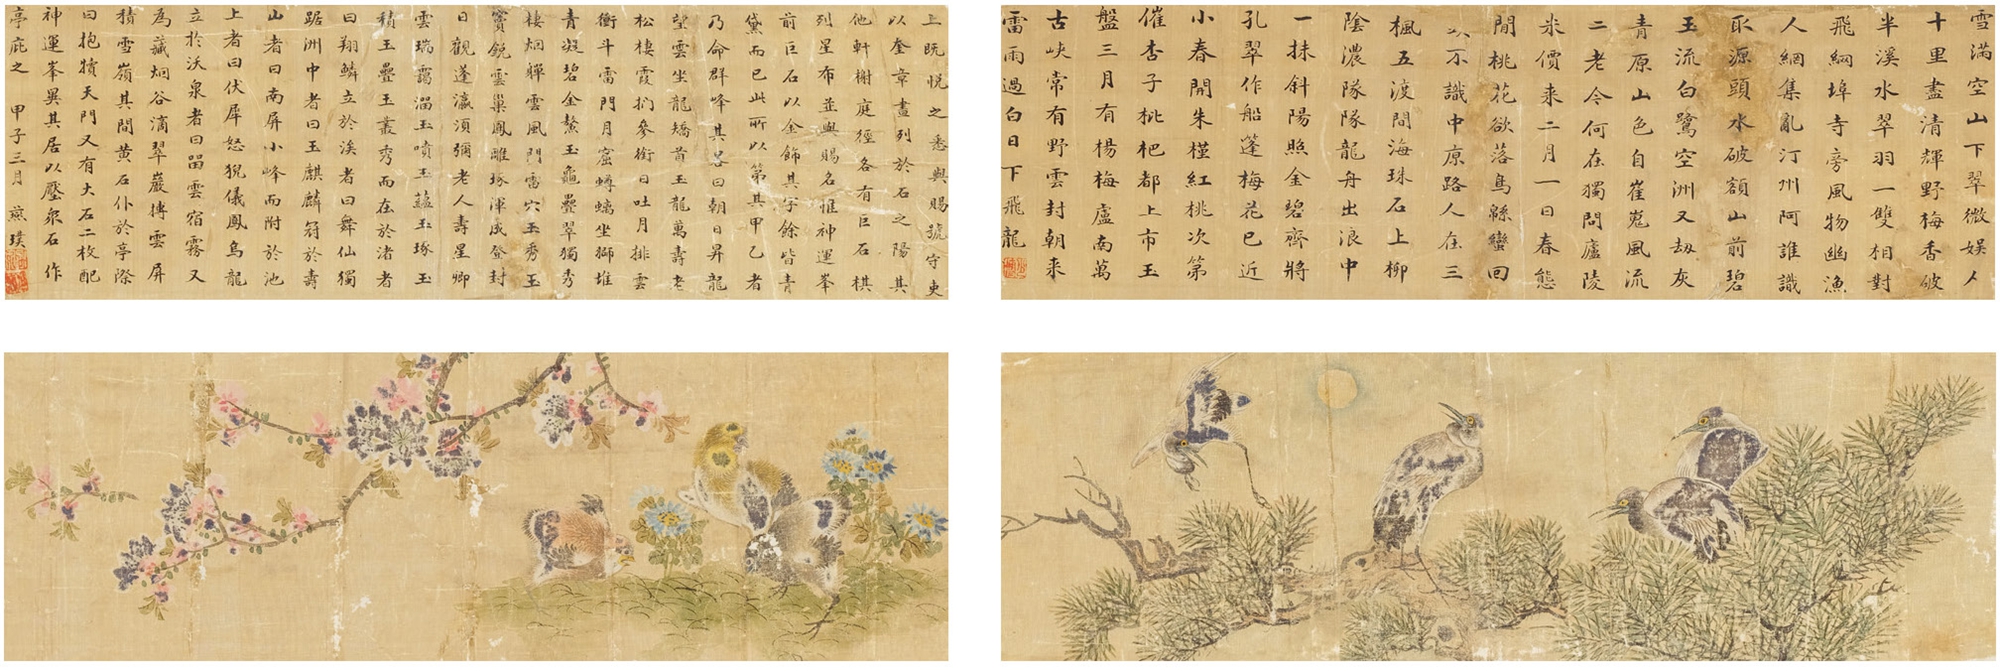 雪滿空山下翠微娛人
十里盡清輝野梅香破
半溪水翠羽一雙相對
飛綱埠寺旁風物幽漁
人網集亂汀州阿誰識
取源頭水破額山前碧
玉流白鷺空洲又劫灰
青原山色自崔嵬風流
二老今何在獨問廬陵
米價來二月一日春態
閒桃花欲落鳥緜蠻回
不識中原路人在三
楓五渡間海珠石上柳
陰濃隊隊龍舟出浪中
一抹斜陽照金碧齊將
孔翠作船篷梅花已近
小春開朱槿紅桃次第
催杏子枇杷都上市玉
盤三月有楊梅盧南萬
古峽常有野雲封朝來
雷雨過白日下飛龍
上既悅之悉與賜號守吏
以奎章畫列於石之陽其
他軒榭庭徑各有巨石棋
列星布並與賜名惟神運峯
前巨石以金飾其字餘皆青
黛而已此所以第其甲乙者
乃命群峰其畧曰朝日昇龍
望雲坐龍矯首玉龍萬壽老
松棲霞捫參銜日吐月排雲
衝斗雷門月窟蹲螭坐獅堆
青凝碧金鰲玉龜疊翠獨秀
棲烟嚲雲風門雷穴玉秀玉
竇銳雲巢鳳雛琢渾成登封
日觀蓬瀛須彌老人壽星卿
雲瑞靄溜玉噴玉蘊玉琢玉
積玉疊玉叢秀而在於渚者
曰翔鱗立於溪者曰舞仙獨
踞洲中者曰玉麒麟冠於壽
山者曰南屏小峰而附於池
上者曰伏犀怒猊儀鳳烏龍
立於沃泉者曰留雲宿霧又
為藏烟谷滴翠巖搏雲屏
積雪嶺其間黃石仆於亭際
曰抱犢天門又有大石二枚配
神運峯異其居以壓衆石作
亭庇之 甲子三月 燕璞